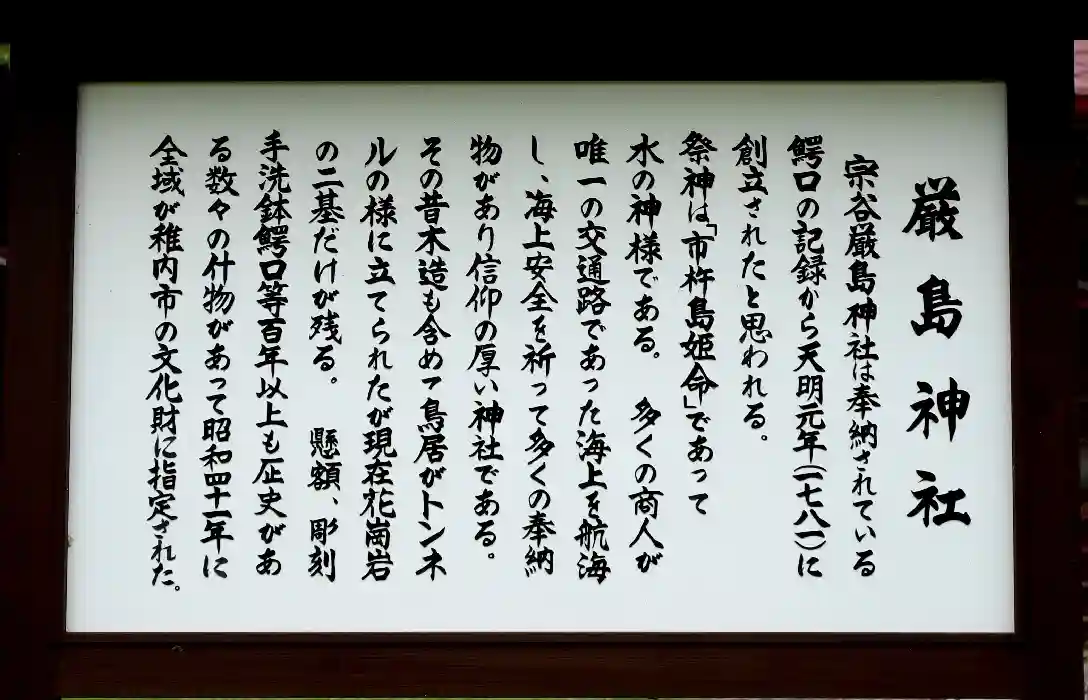 厳島神社
宗谷厳島神社は奉納されている
鰐口の記録から天明元年(一七八一)に
創立されたと思われる。
祭神は「市杵島姫命」であって
水の神様である。 多くの商人が
唯一の交通路であった海上を航海
し、海上安全を祈って多くの奉納
物があり信仰の厚い神社である。
その昔木造も含めて鳥居がトンネ
ルの様に立てられたが現在花崗岩
の二基だけが残る。 懸額、彫刻
手洗鉢鰐口等百年以上も歴史があ
る数々の什物があって昭和四十一年に
全域が稚内市の文化財に指定された。